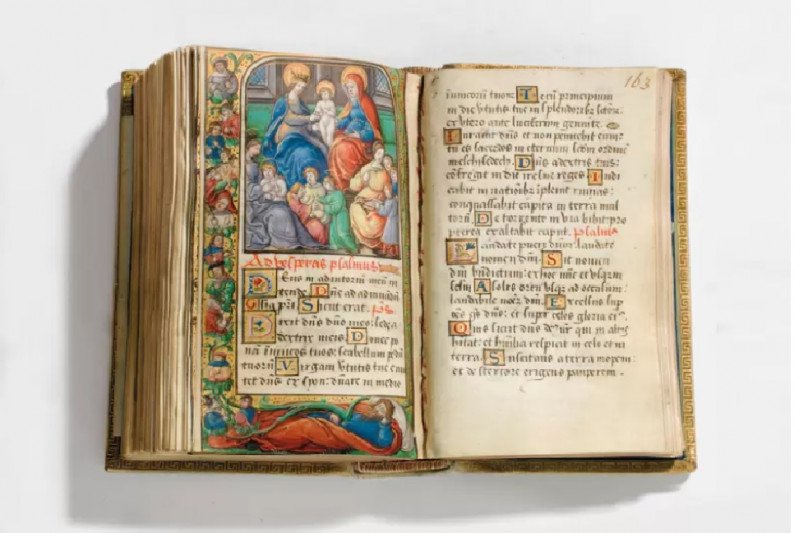 Ad vesperas psalmus
Deus in adiutoriũ meũ in
tende. Dñe ad adiuuãdũ
Głia pr̃i Sicut erat. ps̃
Dixit dñs dño meo: sede a
dextris meis Donec po
nã inimicos tuos: scabellum pedũ
tuorũ Virgam v̓tutis tue emi
tet dñs ex syon: dñare in medio
163
inimicorũ tuorũ Tecũ principium
in die v̓tutis tue in splendoribz sctõr̃
ex vtero ante luciferum genui te.
Iurauit dñs et non penitebit eum:
tu es sacerdos in eternum scdm̃ ordinẽ
melchisedech. Dñs a dextris tuis:
cõfregit in die ire sue reges. Iudi
cabit in nationibz ĩplebit ruinas:
conquassabit capita in terra mul
torũ De torrente in via bibit: pro
pterea exaltabit caput. psalmus
Laudate pueri dñm: laudate
nomen dñi. Sit nomen
dñi bñdictum: ex hoc nũc et vsqz in
sclm̃ A solis ortu vsqz ad occasum:
laudabile nomẽ dñi Excelsus sup
oẽs gẽs dñs: et sup celos gloria eiꝰ.
Quis sicut dñs dẽꝰ nr̃ qui in altis
hitat: et humilia respicit in celo et in
terra Suscitans a terra inopem:
et de stercore erigens pauperem.